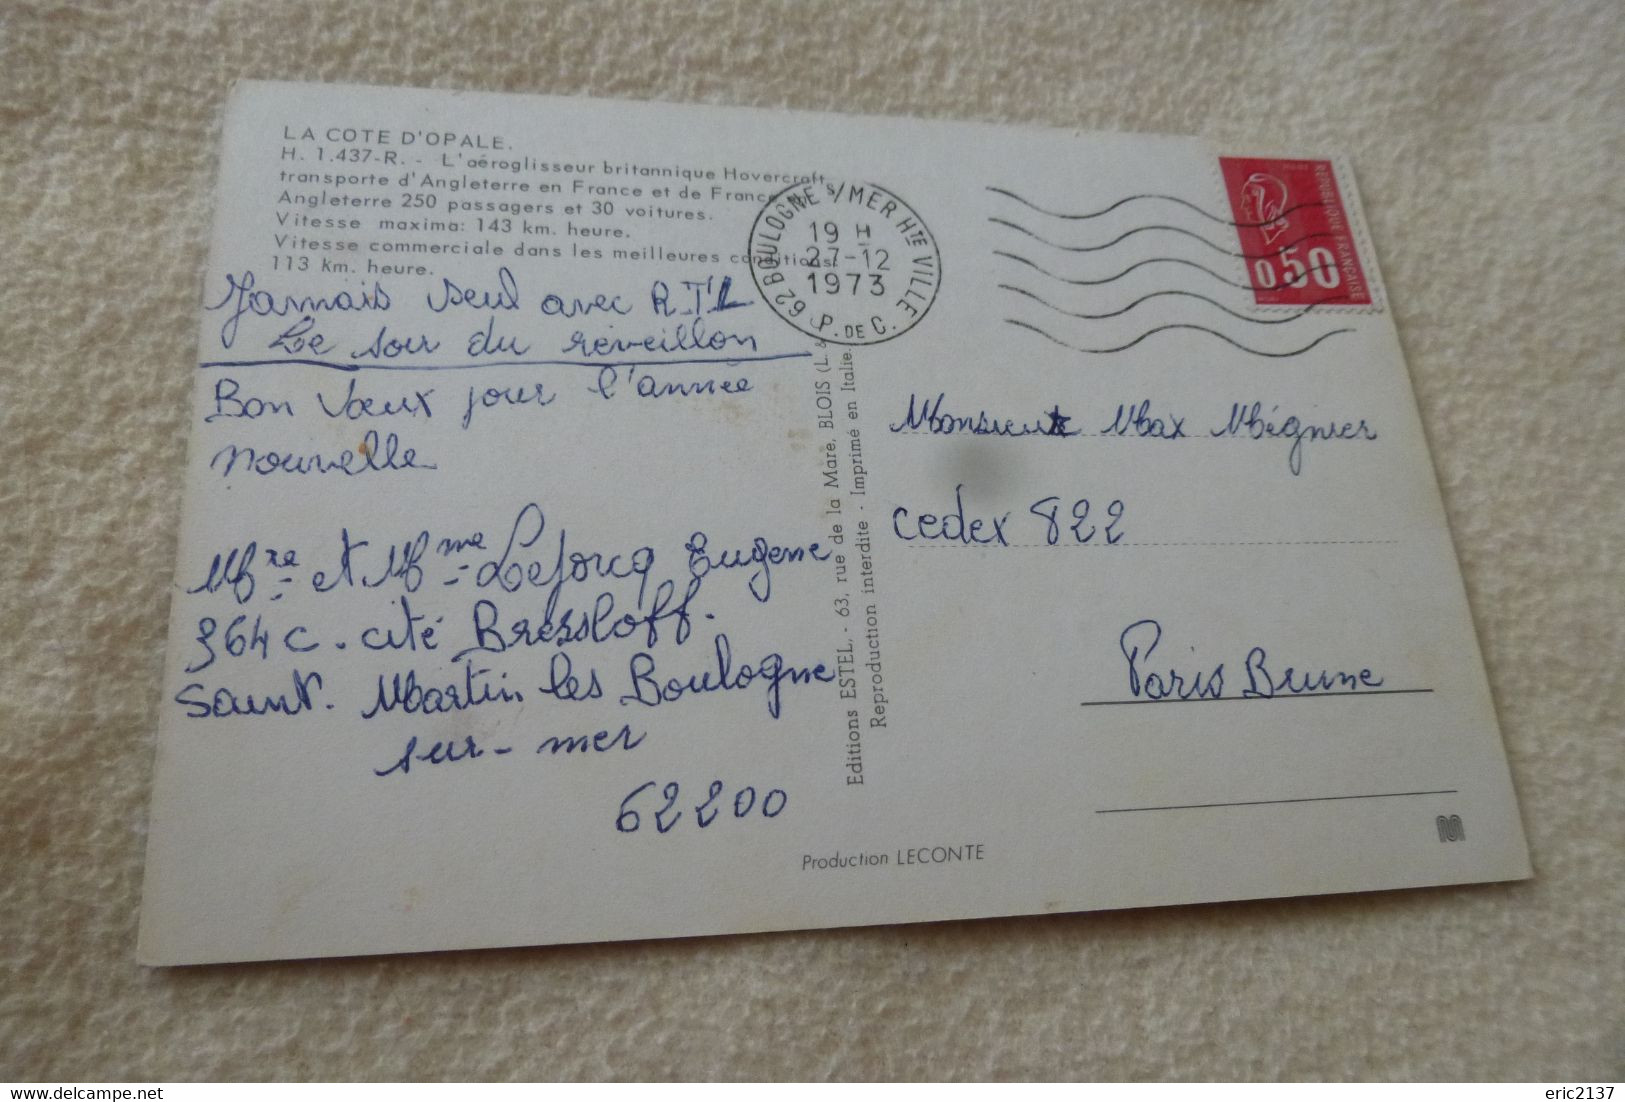 LA COTE D'OPALE.
H. 1.437-R. - L'aéroglisseur britannique Hovercraft
transporte d'Angleterre en France et de France
Angleterre 250 passagers et 30 voitures.
Vitesse maxima: 143 km. heure.
Vitesse commerciale dans les meilleures conditions:
113 km. heure.
Jamais seul avec R.T.L
Le soir du réveillon
Bon Vœux pour l'année
nouvelle
Mre et Mme Leforcq Eugene
364 c. cité Bressloff.
Saint. Martin les Boulogne
sur-mer
62200
62 BOULOGNE S/ MER HTE VILLE
19 H
27-12
1973
P. DE C.
REPUBLIQUE FRANCAISE
0,50
Editions ESTEL. - 63, rue de la Mare, BLOIS (L. &
Reproduction interdite - Imprimé en Italie.
Monsieur Max Mégnier
cedex 822
Paris Brune
Production LECONTE
www.delcampe.net
eric2137